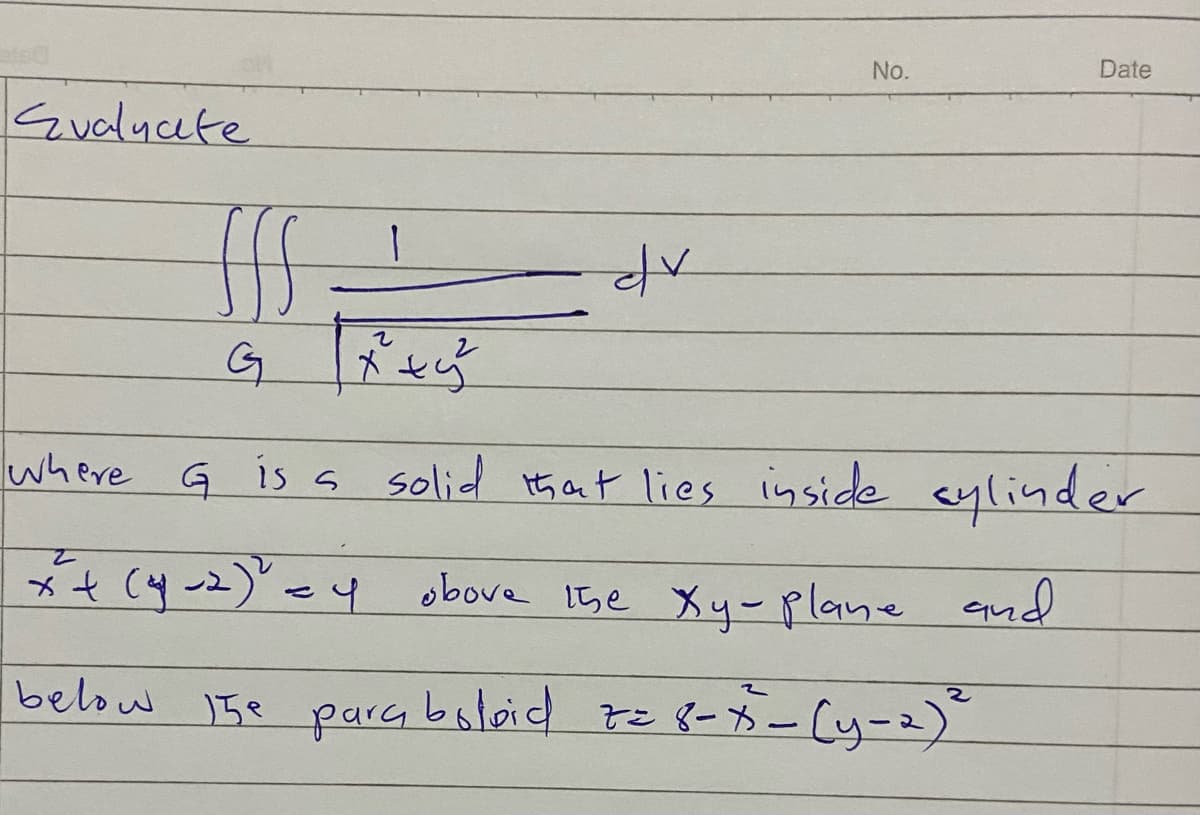 No. Date
Evaluate
∭_G 1/√(x²+y²) dv
where G is a solid that lies inside cylinder
x²+(y-2)²=4 above the xy-plane and
below the paraboloid z=8-x²-(y-2)²